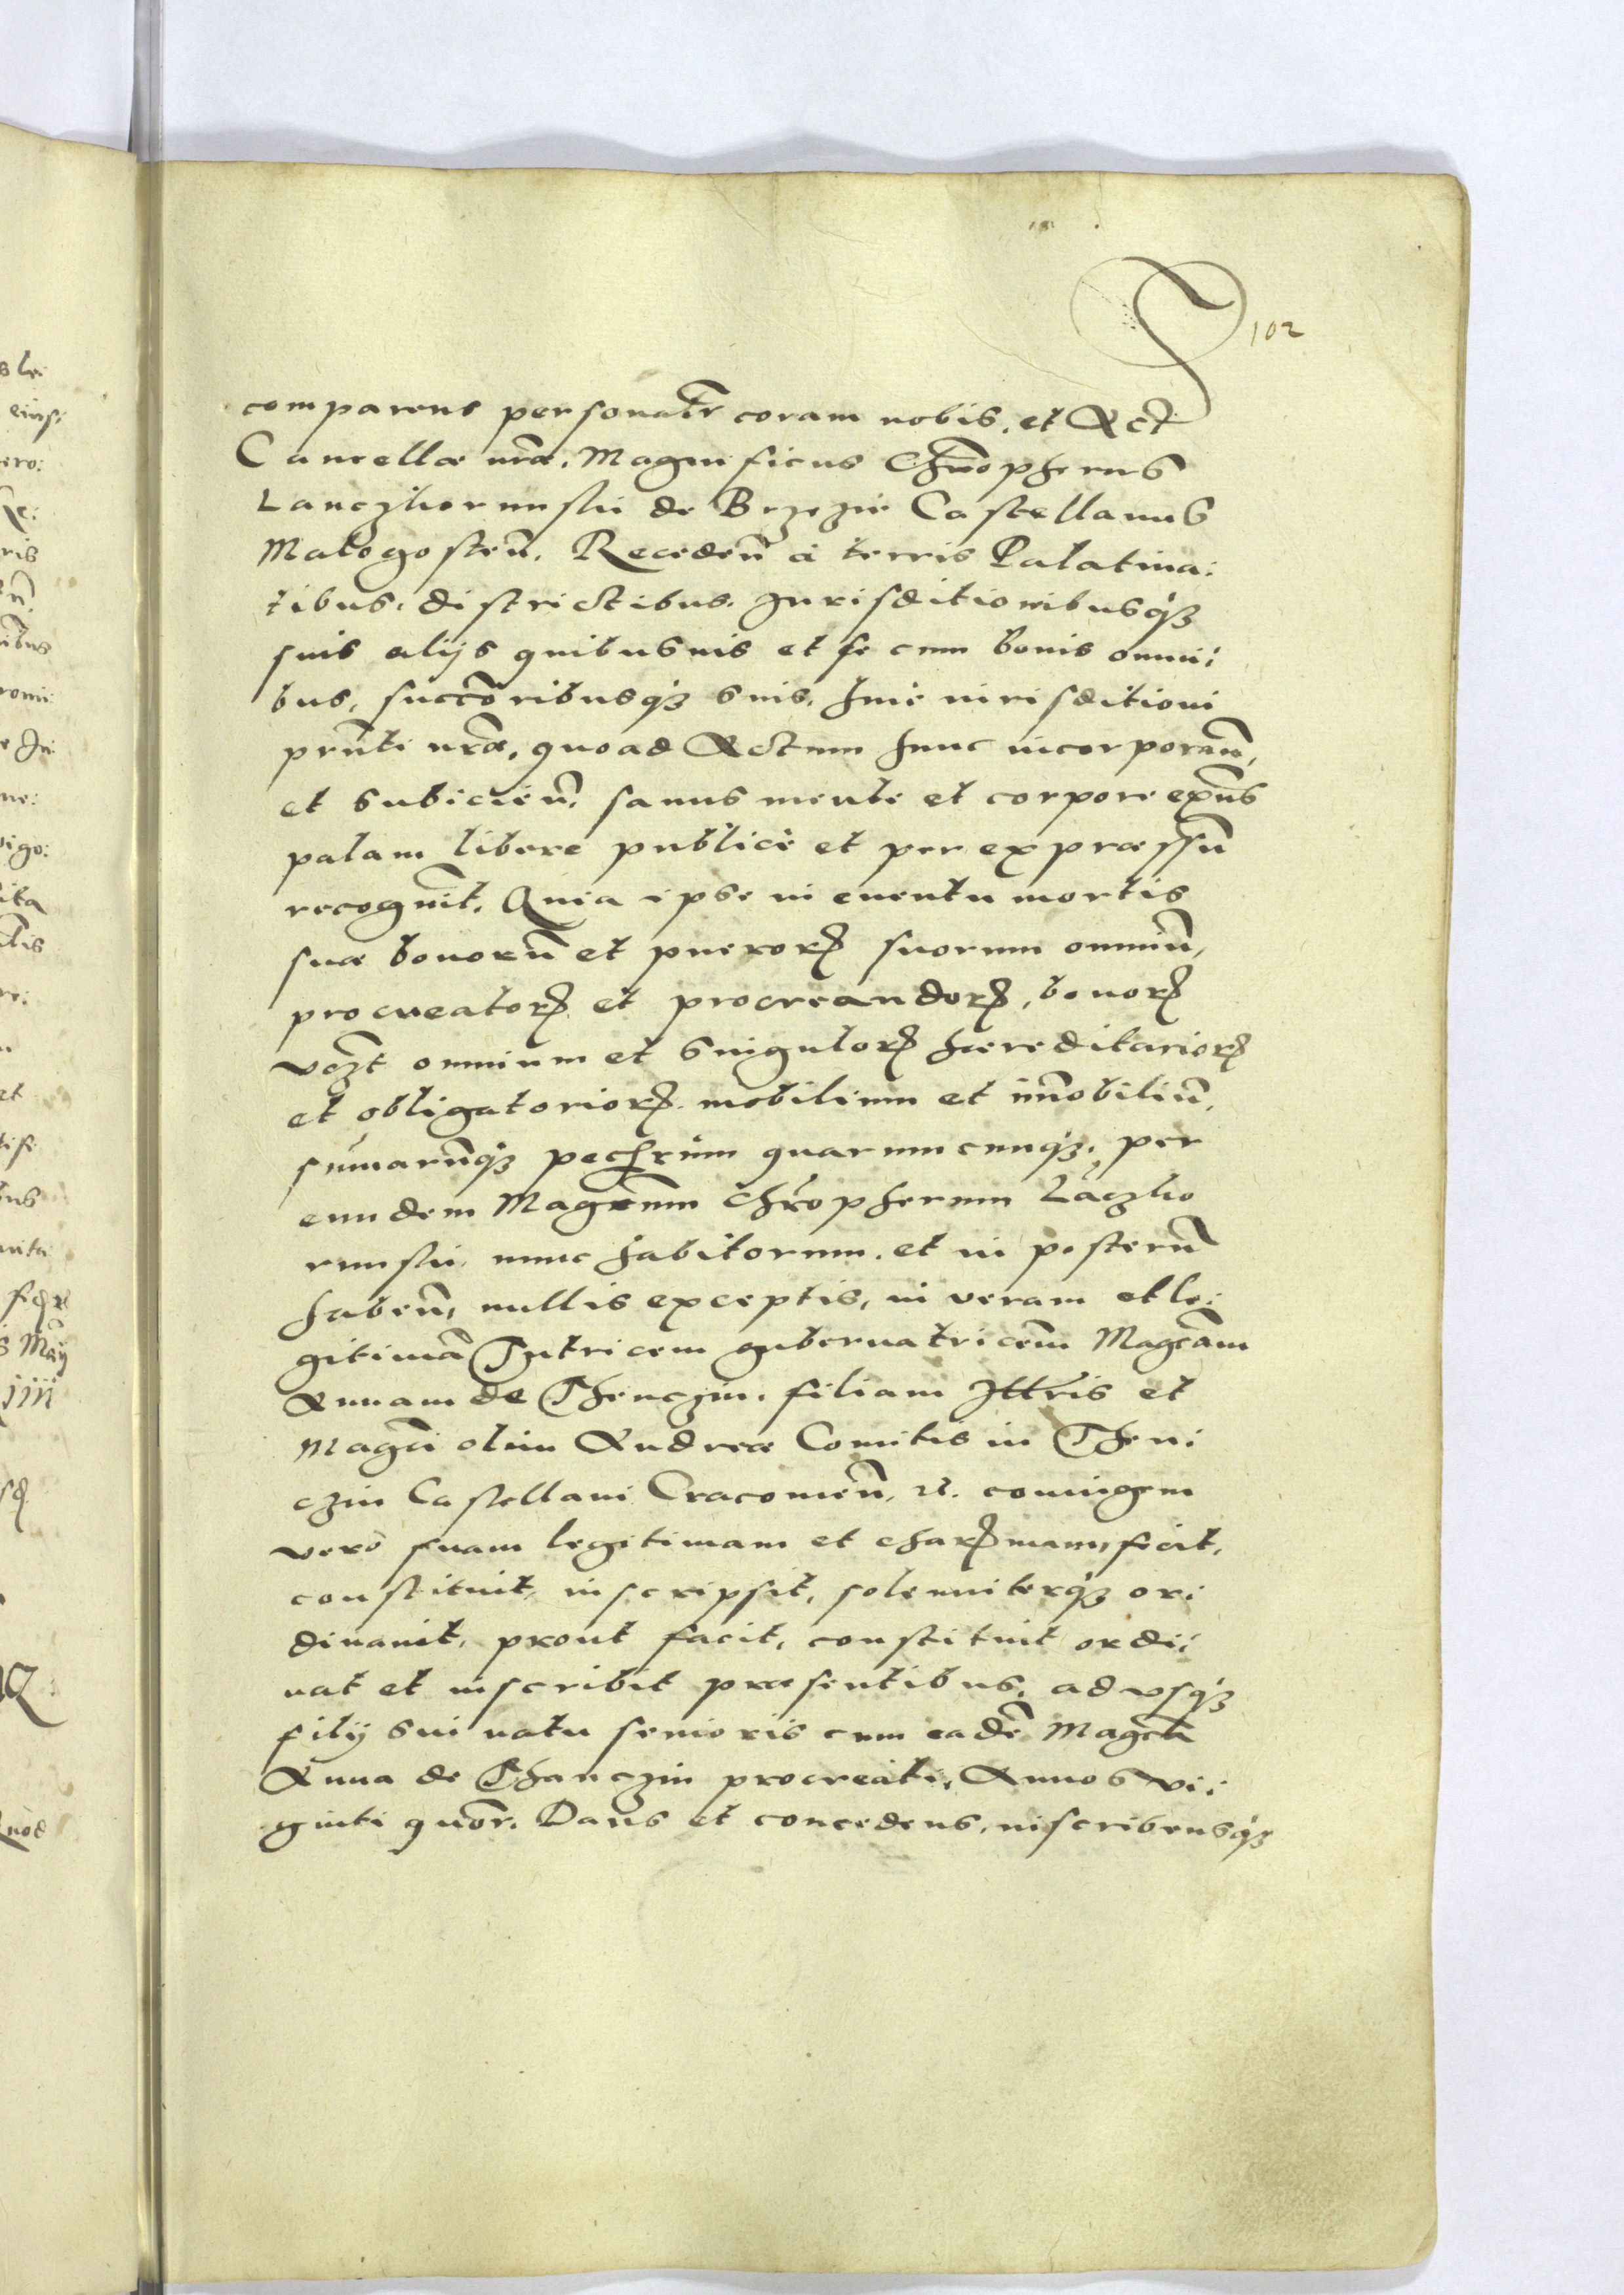 102
comparens personalr̃ coram nobis, et Act
Cancellæ nr̃æ, Magnificus Chr̃ophorus
Lanczkorunski de Brzezie Castellanus
Malogosteñ. Recedeñ à terris Palatina:
tibus, districtibus, Jurisditionibusq́ȝ
suis alijs quibusuis et se cum bonis omni:
bus, succ̃oribusq́ȝ suis, huic iurisditioni
pr̃nti nr̃æ, quoad Actum hunc incorporañ,
et subicieñ, sanus mente et corpore exñs
palam libere publicè et per expræssũ
recognit̃. Quia ipse in euentu mortis
suæ bonorũ et pueror suorum omniũ,
procreator et procreandor, bonor
vc̨zt omnium et singulor hæreditarior
et obligatorior, mobilium et im̃obiliũ,
sum̃arũq́ȝ pecũrum quarumcunq́ȝ, per
eundem Magcum Chr̃opherum Lãczko
runski, nunc habitorum, et in posterũ
habeñ, nullis exceptis, in veram et le:
gitimã Tutricem gubernatricem Magcam
Annam de Thenczin, filiam Illr̃is et
Magci olim Andreæ Comitis in Then:
czin Castellani Cracouieñ, etc. coniugem
verò suam legitimam et charmam, fecit,
constituit, inscripsit, solenniterq́ȝ or:
dinauit, prout facit, constituit ordi:
nat et inscribit præsentibus, ad vsq́ȝ
filij sui natu senioris cum eadẽ Magca
Anna de Thanczin procreati, Annos vi:
ginti quor̃. Dans et concedens, inscribensq́ȝ